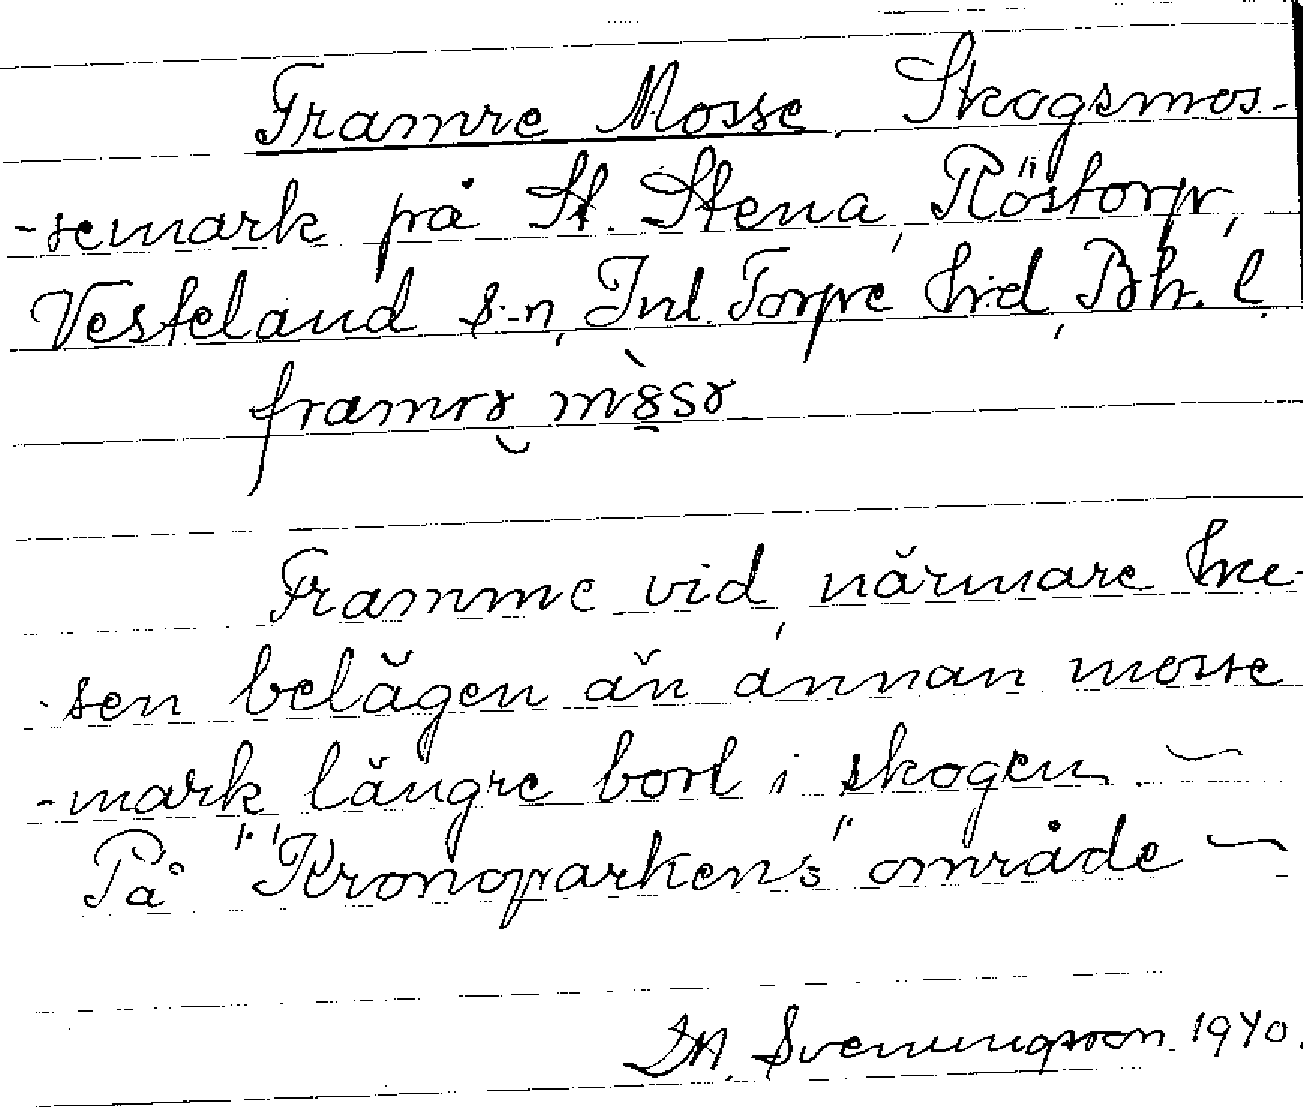 Framre Mosse, Skogsmos-
-semark på St. Stena, Röstorp,
Vesteland s-n, Inl. Torpe hrd, Bhr. l.
framrɤ mɤ̀ssɤ
Framme vid, närmare hu-
-sen belägen än annan mosse
-mark längre bort i skogen. —
På "Kronoparkens" område —
Svenungsson 1940.